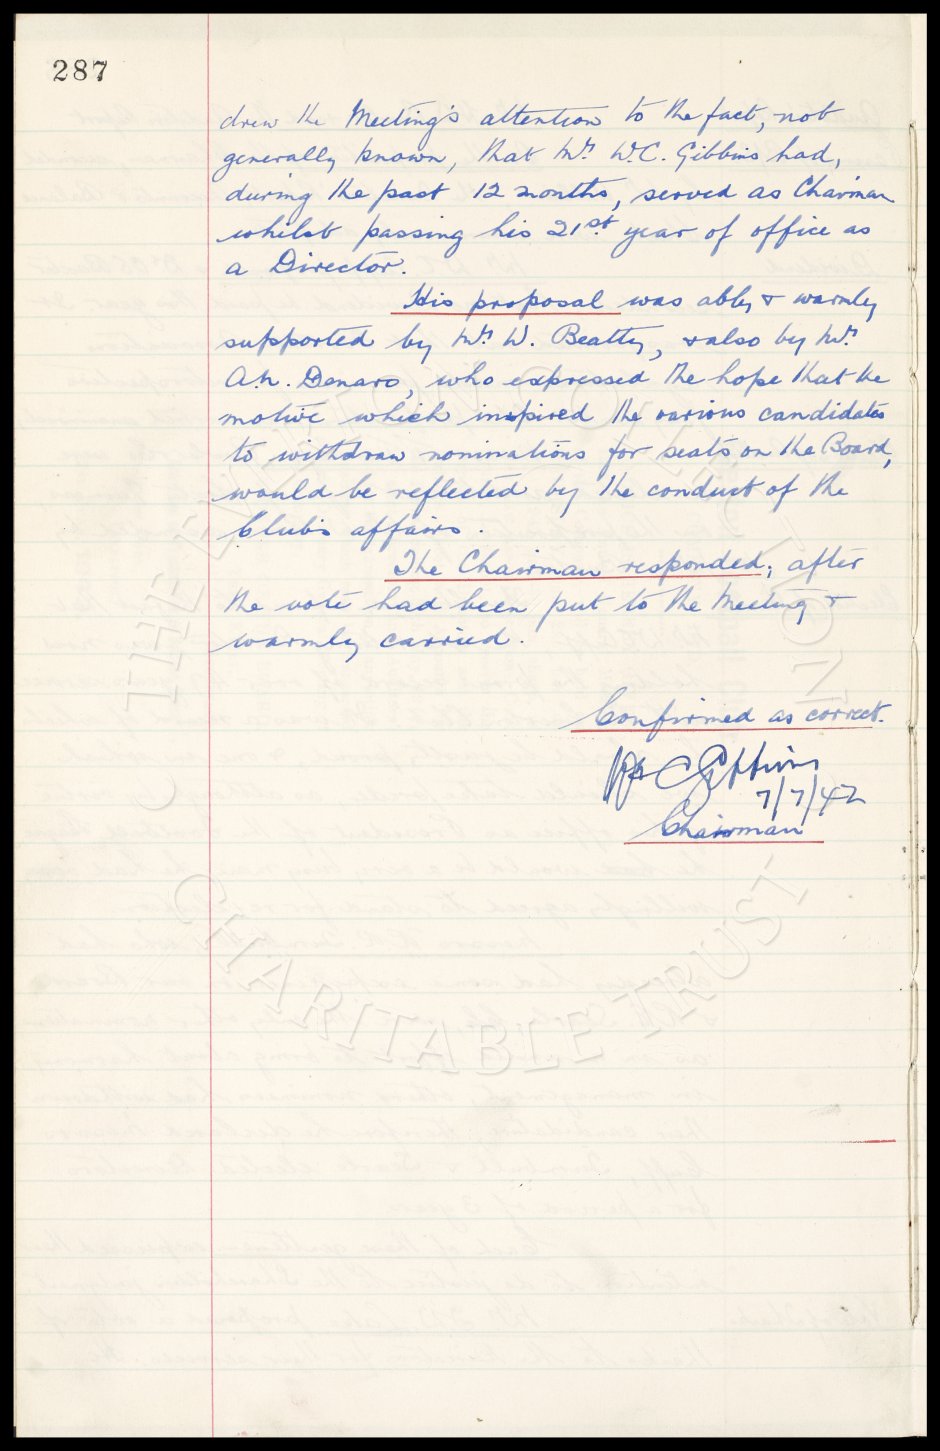 287
drew the Meeting's attention to the fact, not
generally known, that Mr. W.C. Gibbins had,
during the past 12 months, served as Chairman
whilst passing his 21st. year of office as
a Director.
His proposal was ably & warmly
supported by Mr. W. Beatty, & also by Mr.
A.h. Denaro, who expressed the hope that the
motive which inspired the various candidates
to withdraw nominations for seats on the Board,
would be reflected by the conduct of the
Club's affairs.
The Chairman responded; after
the vote had been put to the Meeting &
warmly carried.
Confirmed as correct.
W C Gibbins
7/7/42
Chairman
CHARITABLE TRUST